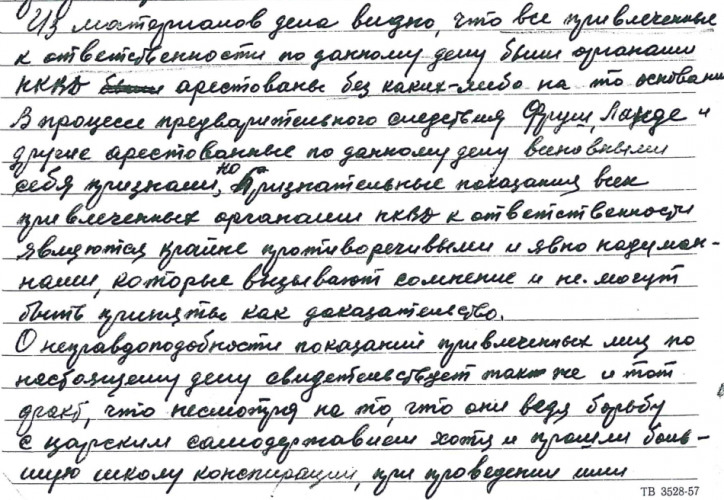 Из материалов дела видно, что все привлеченные
к ответственности по данному делу были органами
НКВД были арестованы без каких-либо на то основани
В процессе предварительного следствия Фруш, Ланде и
другие арестованные по данному делу виновными
себя признали, но признательные показания всех
привлеченных органами НКВД к ответственности
являются крайне противоречивыми и явно надуман-
ными, которые вызывают сомнение и не могут
быть приняты как доказательство.
О неправдоподобности показаний привлеченных лиц по
настоящему делу свидетельствует так же и тот
факт, что несмотря на то, что они ведя борьбу
с царским самодержавием хотя и прошли боль-
шую школу конспирации, при проведении ими
ТВ 3528-57